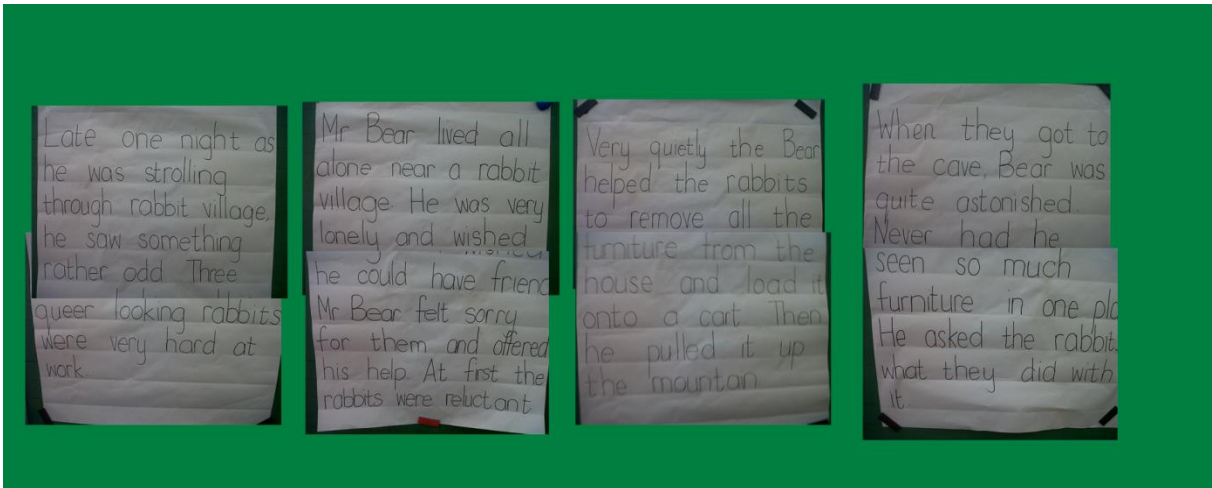 Late one night as
he was strolling
through rabbit village,
he saw something
rather odd Three
queer looking rabbits
were very hard at
work.
Mr Bear lived all
alone near a rabbit
village. He was very
lonely and wished
he could have friend
Mr Bear felt sorry
for them and offered
his help. At first the
rabbits were reluctant
Very quietly the Bear
helped the rabbits
to remove all the
furniture from the
house and load it
onto a cart Then
he pulled it up
the mountan
When they got to
the cave, Bear was
quite astonished.
Never had he
seen so much
furniture in one pla
He asked the rabbit
what they did with
it.